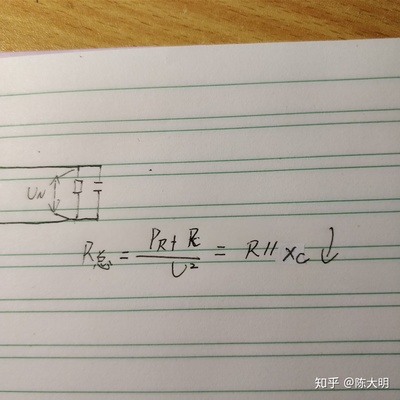 UN
R总 = (PR + PC) / U² = R // XC ↓
知乎 @陈大明